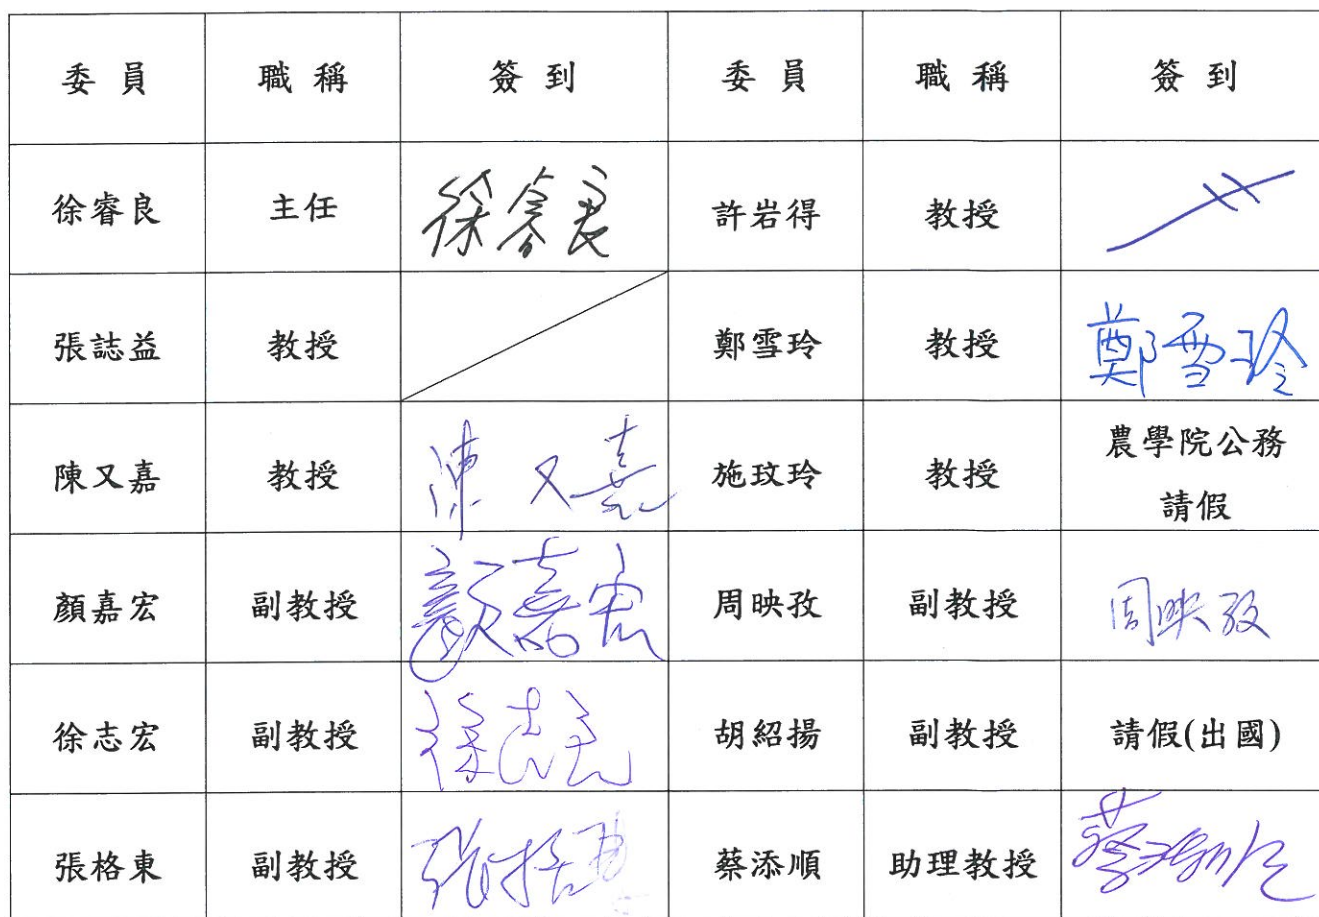 委員 職稱 簽到 委員 職稱 簽到
徐睿良 主任 徐睿良 許岩得 教授
張誌益 教授 鄭雪玲 教授 鄭雪玲
陳又嘉 教授 陳又嘉 施玟玲 教授 農學院公務
請假
顏嘉宏 副教授 顏嘉宏 周映孜 副教授 周映孜
徐志宏 副教授 徐志宏 胡紹揚 副教授 請假(出國)
張格東 副教授 張格東 蔡添順 助理教授 蔡添順